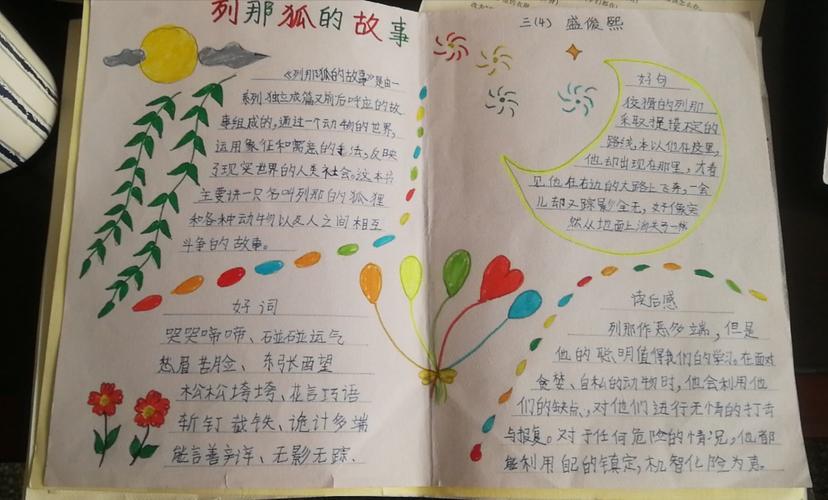 列那狐的故事
《列那狐的故事》是由一
系列独立成篇又前后呼应的故
事组成的,通过一个动物的世界,
运用象征和寓意的手法,反映
了现实世界的人类社会。这本书
主要讲一只名叫列那的狐狸
和各种动物以及人之间相互
斗争的故事。
好词
哭哭啼啼、碰碰运气
愁眉苦脸、东张西望
松松垮垮、花言巧语
斩钉截铁、诡计多端
能言善辩、无影无踪、
三(4) 盛俊熙
好句
狡猾的列那
采取摸捉不定的
路线本以他在这里,
他却出现在那里,才看
见他在右边的大路上飞奔,一会
儿却又踪影全无,好像突
然从地面上消失了一样
读后感
列那作恶多端,但是
他的聪明值得我们的学习。在面对
贪婪、自私的动物时,他会利用他
们的缺点、对他们进行无情的打击
与报复。对于任何危险的情况,他都
能利用自己的镇定,机智化险为夷。